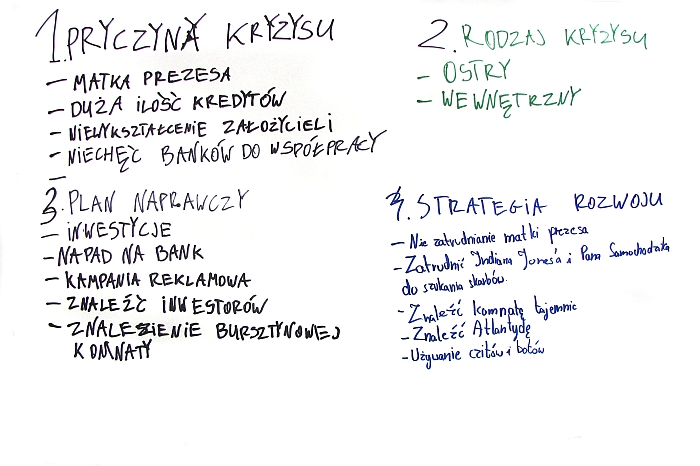 1. PRYCZYNY KRYZYSU
– MATKA PREZESA
– DUŻA ILOŚĆ KREDYTÓW
– NIEWYKSZTAŁCENIE ZAŁOŻYCIELI
– NIECHĘĆ BANKÓW DO WSPÓŁPRACY
–
2. RODZAJ KRYZYSU
– OSTRY
– WEWNĘTRZNY
3. PLAN NAPRAWCZY
– INWESTYCJE
– NAPAD NA BANK
– KAMPANIA REKLAMOWA
– ZNALEŹĆ INWESTORÓW
– ZNALEZIENIE BURSZTYNOWEJ
KOMNATY
4. STRATEGIA ROZWOJU
– Nie zatrudnianie matki prezesa
– Zatrudnić Indiana Jones'a i Pana Samochodzika
do szukania skarbów.
– Znaleźć komnatę tajemnic
– Znaleźć Atlantydę
– Używanie czitów i botów